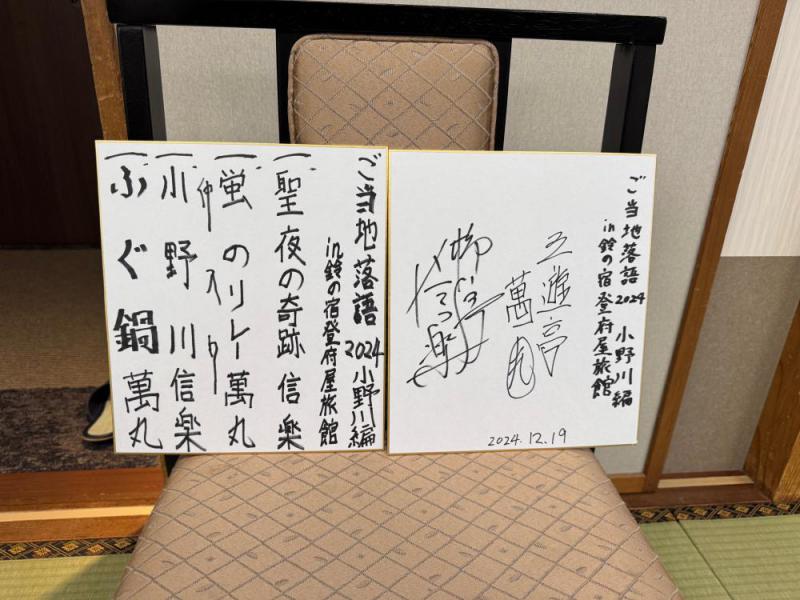 ご当地落語 2024 小野川編
in 鈴の宿登府屋旅館
一 聖夜の奇跡 信楽
一 蛍のリレー 萬丸
仲入り
一 小野川 信楽
一 ふぐ鍋 萬丸
ご当地落語 2024 小野川編
in 鈴の宿 登府屋旅館
三遊亭
萬丸
柳亭
信楽
2024.12.19